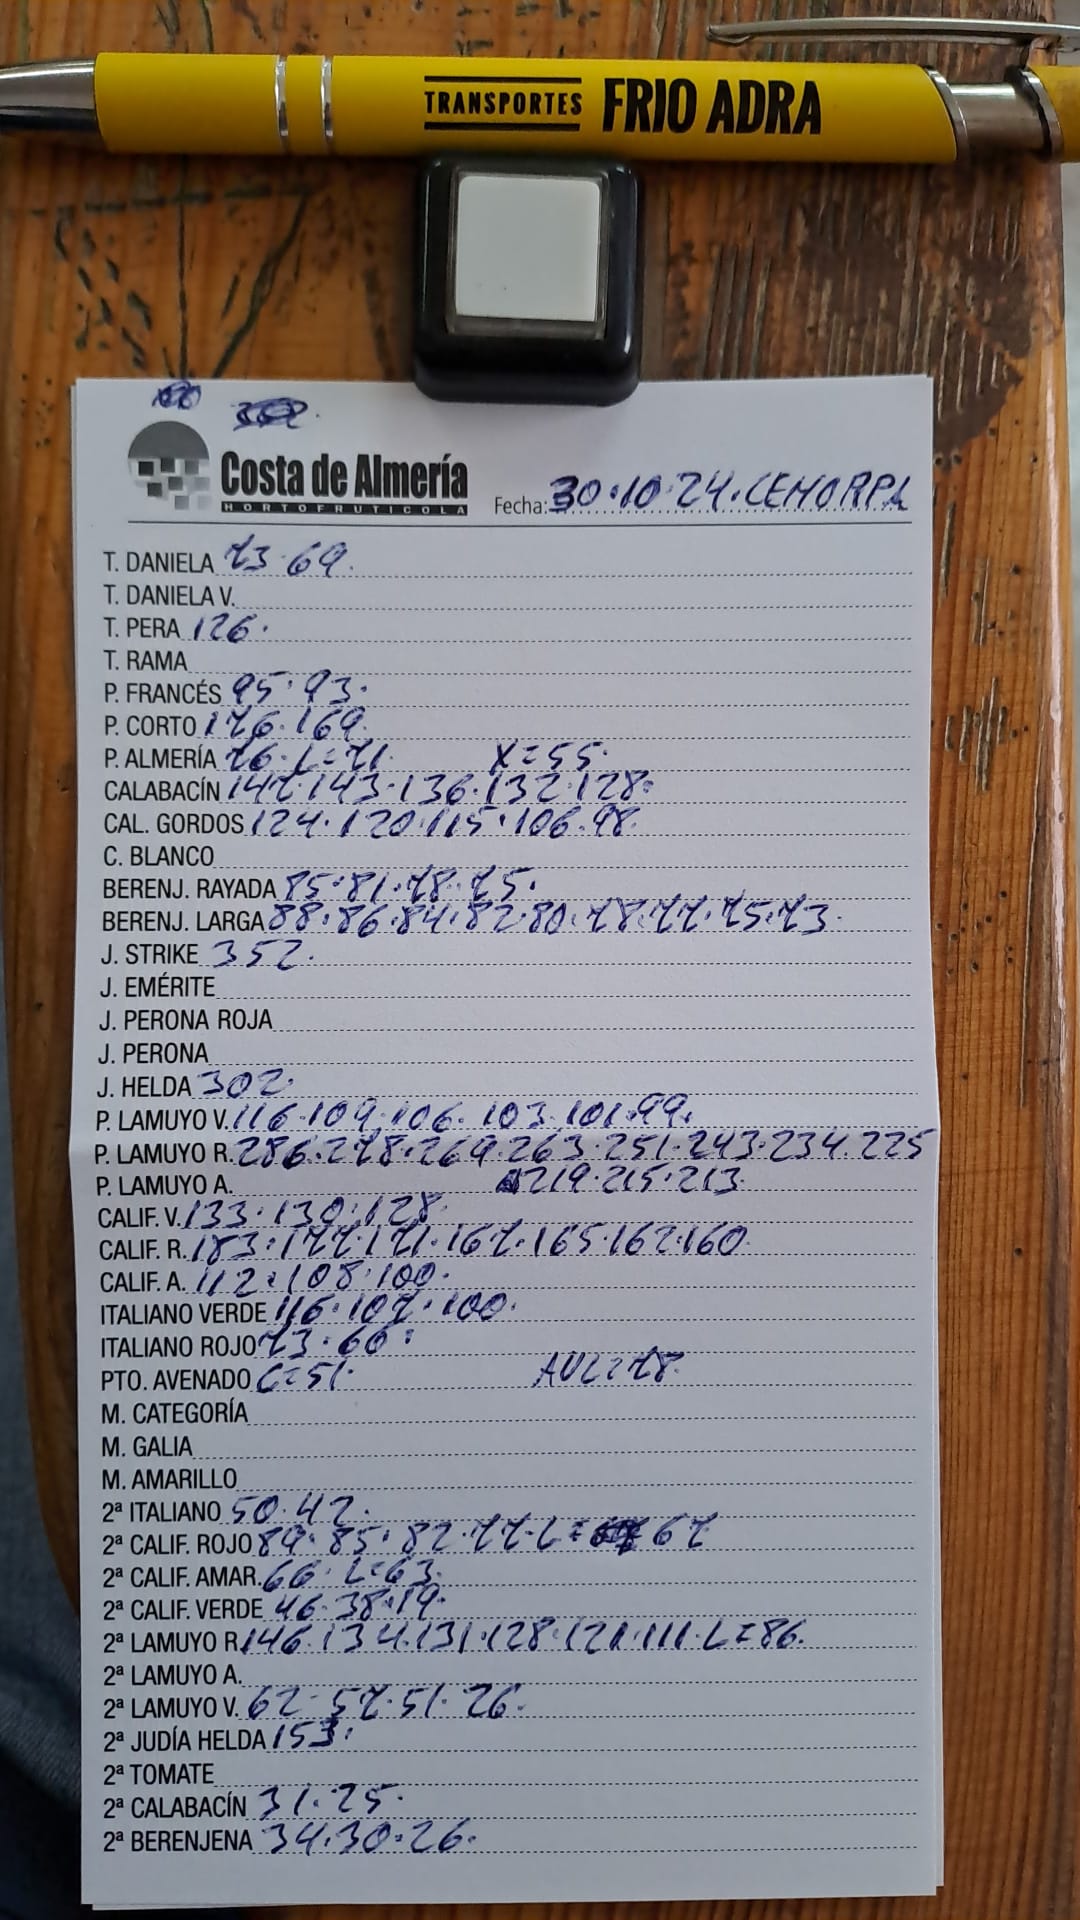 TRANSPORTES FRIO ADRA
Costa de Almería
HORTOFRUTICOLA
Fecha: 30.10.24. CEHORPA
T. DANIELA 73.69.
T. DANIELA V.
T. PERA 126.
T. RAMA
P. FRANCÉS 95.93.
P. CORTO 176.169.
P. ALMERÍA 76. L=71. X=55.
CALABACÍN 147.143.136.132.128.
CAL. GORDOS 124.120.115.106.98.
C. BLANCO
BERENJ. RAYADA 85.81.78.75.
BERENJ. LARGA 88.86.84.82.80.78.77.75.73.
J. STRIKE 352.
J. EMÉRITE
J. PERONA ROJA
J. PERONA
J. HELDA 302.
P. LAMUYO V. 116.109.106.103.101.99.
P. LAMUYO R. 286.278.269.263.251.243.234.225
P. LAMUYO A. 219.215.213.
CALIF. V. 133.130.128.
CALIF. R. 183.177.171.167.165.162.160.
CALIF. A. 112.108.100.
ITALIANO VERDE 116.107.100.
ITALIANO ROJO 73.66.
PTO. AVENADO C=51. AVL=78.
M. CATEGORÍA
M. GALIA
M. AMARILLO
2ª ITALIANO 50.42.
2ª CALIF. ROJO 89.85.82.77.L= 67
2ª CALIF. AMAR. 66. L=63.
2ª CALIF. VERDE 46.38.19.
2ª LAMUYO R. 146.134.131.128.121.111.L=86.
2ª LAMUYO A.
2ª LAMUYO V. 62.57.51.26.
2ª JUDÍA HELDA 153.
2ª TOMATE
2ª CALABACÍN 31.25.
2ª BERENJENA 34.30.26.